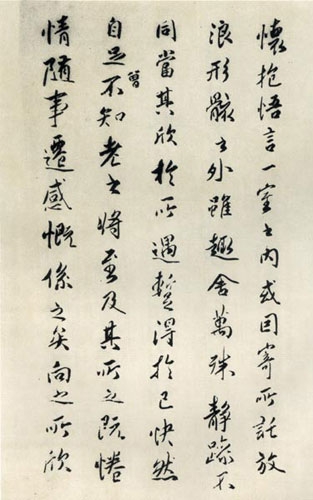 懷抱悟言一室之內或因寄所託放
浪形骸之外雖趣舍萬殊靜躁不
同當其欣於所遇暫得於己快然
自足不知老之將至及其所之既惓
曾
情隨事遷感慨係之矣向之所欣